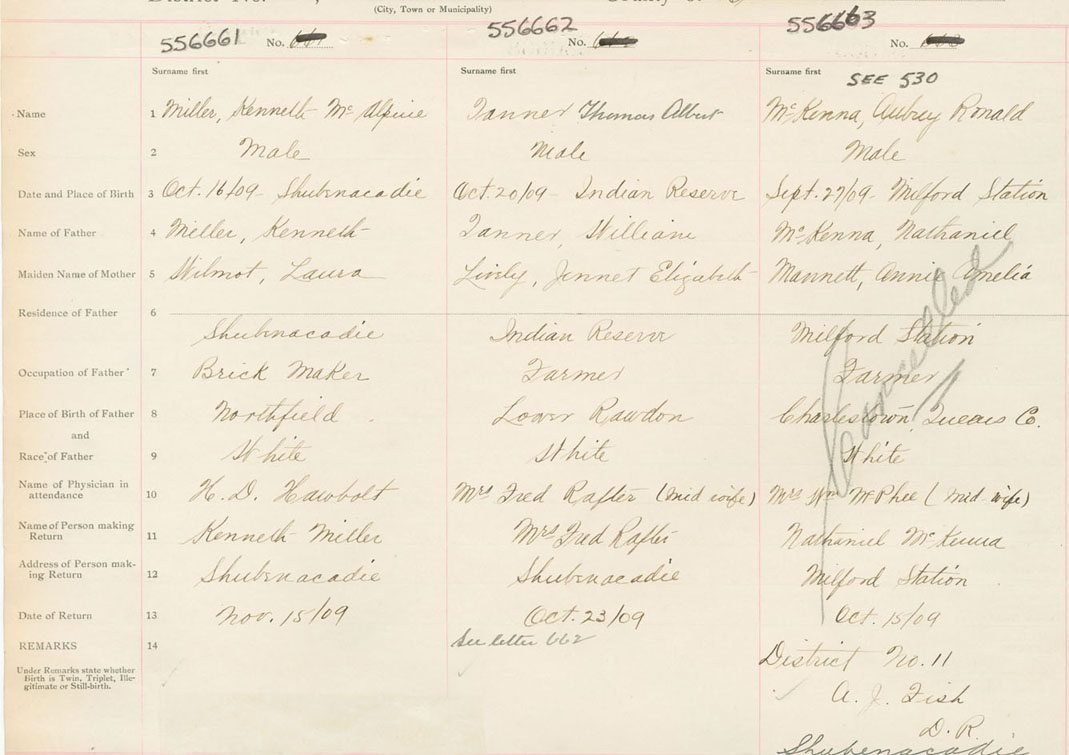 (City, Town or Municipality)
556661 No.
556662 No.
556663 No.
Surname first
Surname first
Surname first SEE 530
Name 1 Miller, Kenneth McAlpine Tanner Thomas Albert McKenna, Aubrey Ronald
Sex 2 Male Male Male
Date and Place of Birth 3 Oct. 16/09 - Shubenacadie Oct 20/09 - Indian Reserve Sept. 27/09 - Milford Station
Name of Father 4 Miller, Kenneth Tanner, William McKenna, Nathaniel
Maiden Name of Mother 5 Wilmot, Laura Lively, Jennet Elizabeth Mannett, Annie Amelia
Residence of Father 6 Shubenacadie Indian Reserve Milford Station
Occupation of Father 7 Brick Maker Farmer Farmer
Place of Birth of Father 8 Northfield Lower Rawdon Charlestown, Queens Co.
and
Race of Father 9 White White White
Cancelled
Name of Physician in
attendance 10 H. D. Hawbolt Mrs Fred Rafter (mid wife) Mrs Wm McPhee (mid wife)
Name of Person making
Return 11 Kenneth Miller Mrs Fred Rafter Nathaniel McKenna
Address of Person mak-
ing Return 12 Shubenacadie Shubenacadie Milford Station
Date of Return 13 Nov. 15/09 Oct. 23/09 Oct. 15/09
REMARKS 14 See letter 662 District No. 11
Under Remarks state whether
Birth is Twin, Triplet, Ille-
gitimate or Still-birth.
A. J. Fish
D. R.
Shubenacadie